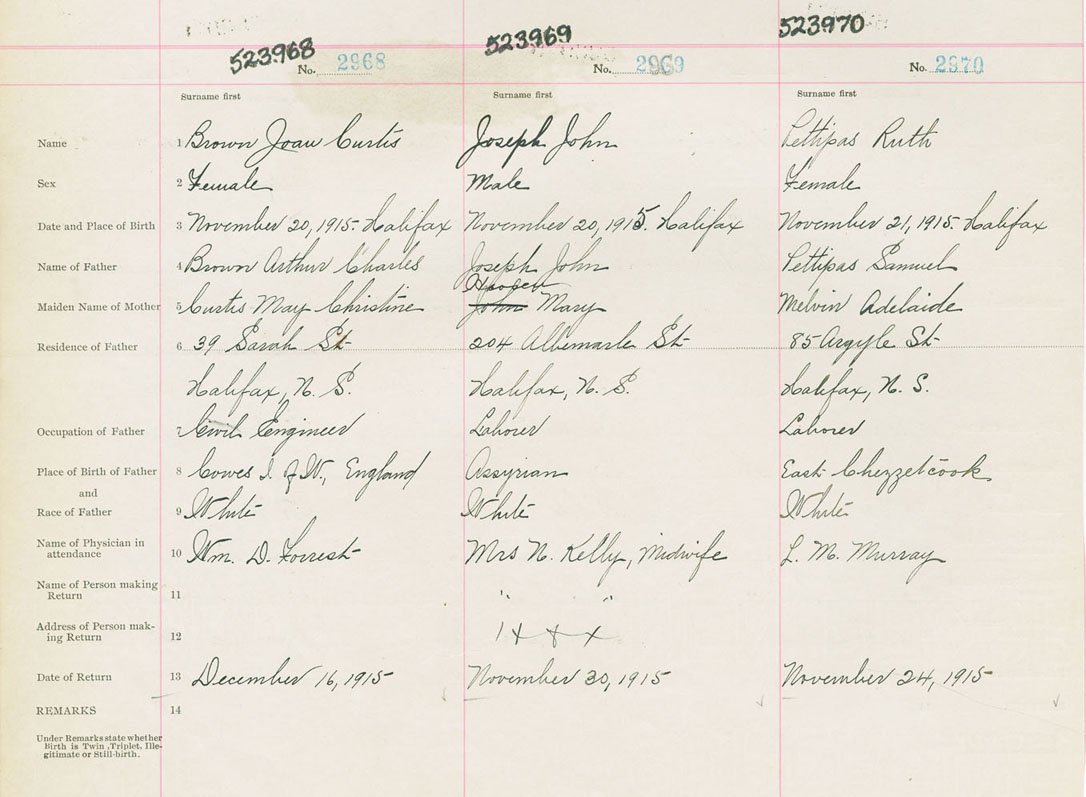 523968 523969 523970
No. 2968 No. 2969 No. 2970
Surname first Surname first Surname first
Name 1 Brown Joan Curtis Joseph John Pettipas Ruth
Sex 2 Female Male Female
Date and Place of Birth 3 November 20, 1915. Halifax November 20, 1915. Halifax November 21, 1915. Halifax
Name of Father 4 Brown Arthur Charles Joseph John Pettipas Samuel
Maiden Name of Mother 5 Curtis May Christine John Mary Melvin Adelaide
Residence of Father 6 39 Sarah St 204 Albemarle St 85 Argyle St
Halifax, N. S. Halifax, N. S. Halifax, N. S.
Occupation of Father 7 Civil Engineer Laborer Laborer
Place of Birth of Father 8 Cowes I. of W., England Assyrian East Chezzetcook
and
Race of Father 9 White White White
Name of Physician in
attendance 10 Wm. D. Forrest Mrs N. Kelly, Midwife L. M. Murray
Name of Person making
Return 11 " "
Address of Person mak-
ing Return 12
Date of Return 13 December 16, 1915 November 30, 1915 November 24, 1915
REMARKS 14
Under Remarks state whether
Birth is Twin, Triplet, Ille-
gitimate or Still-birth.